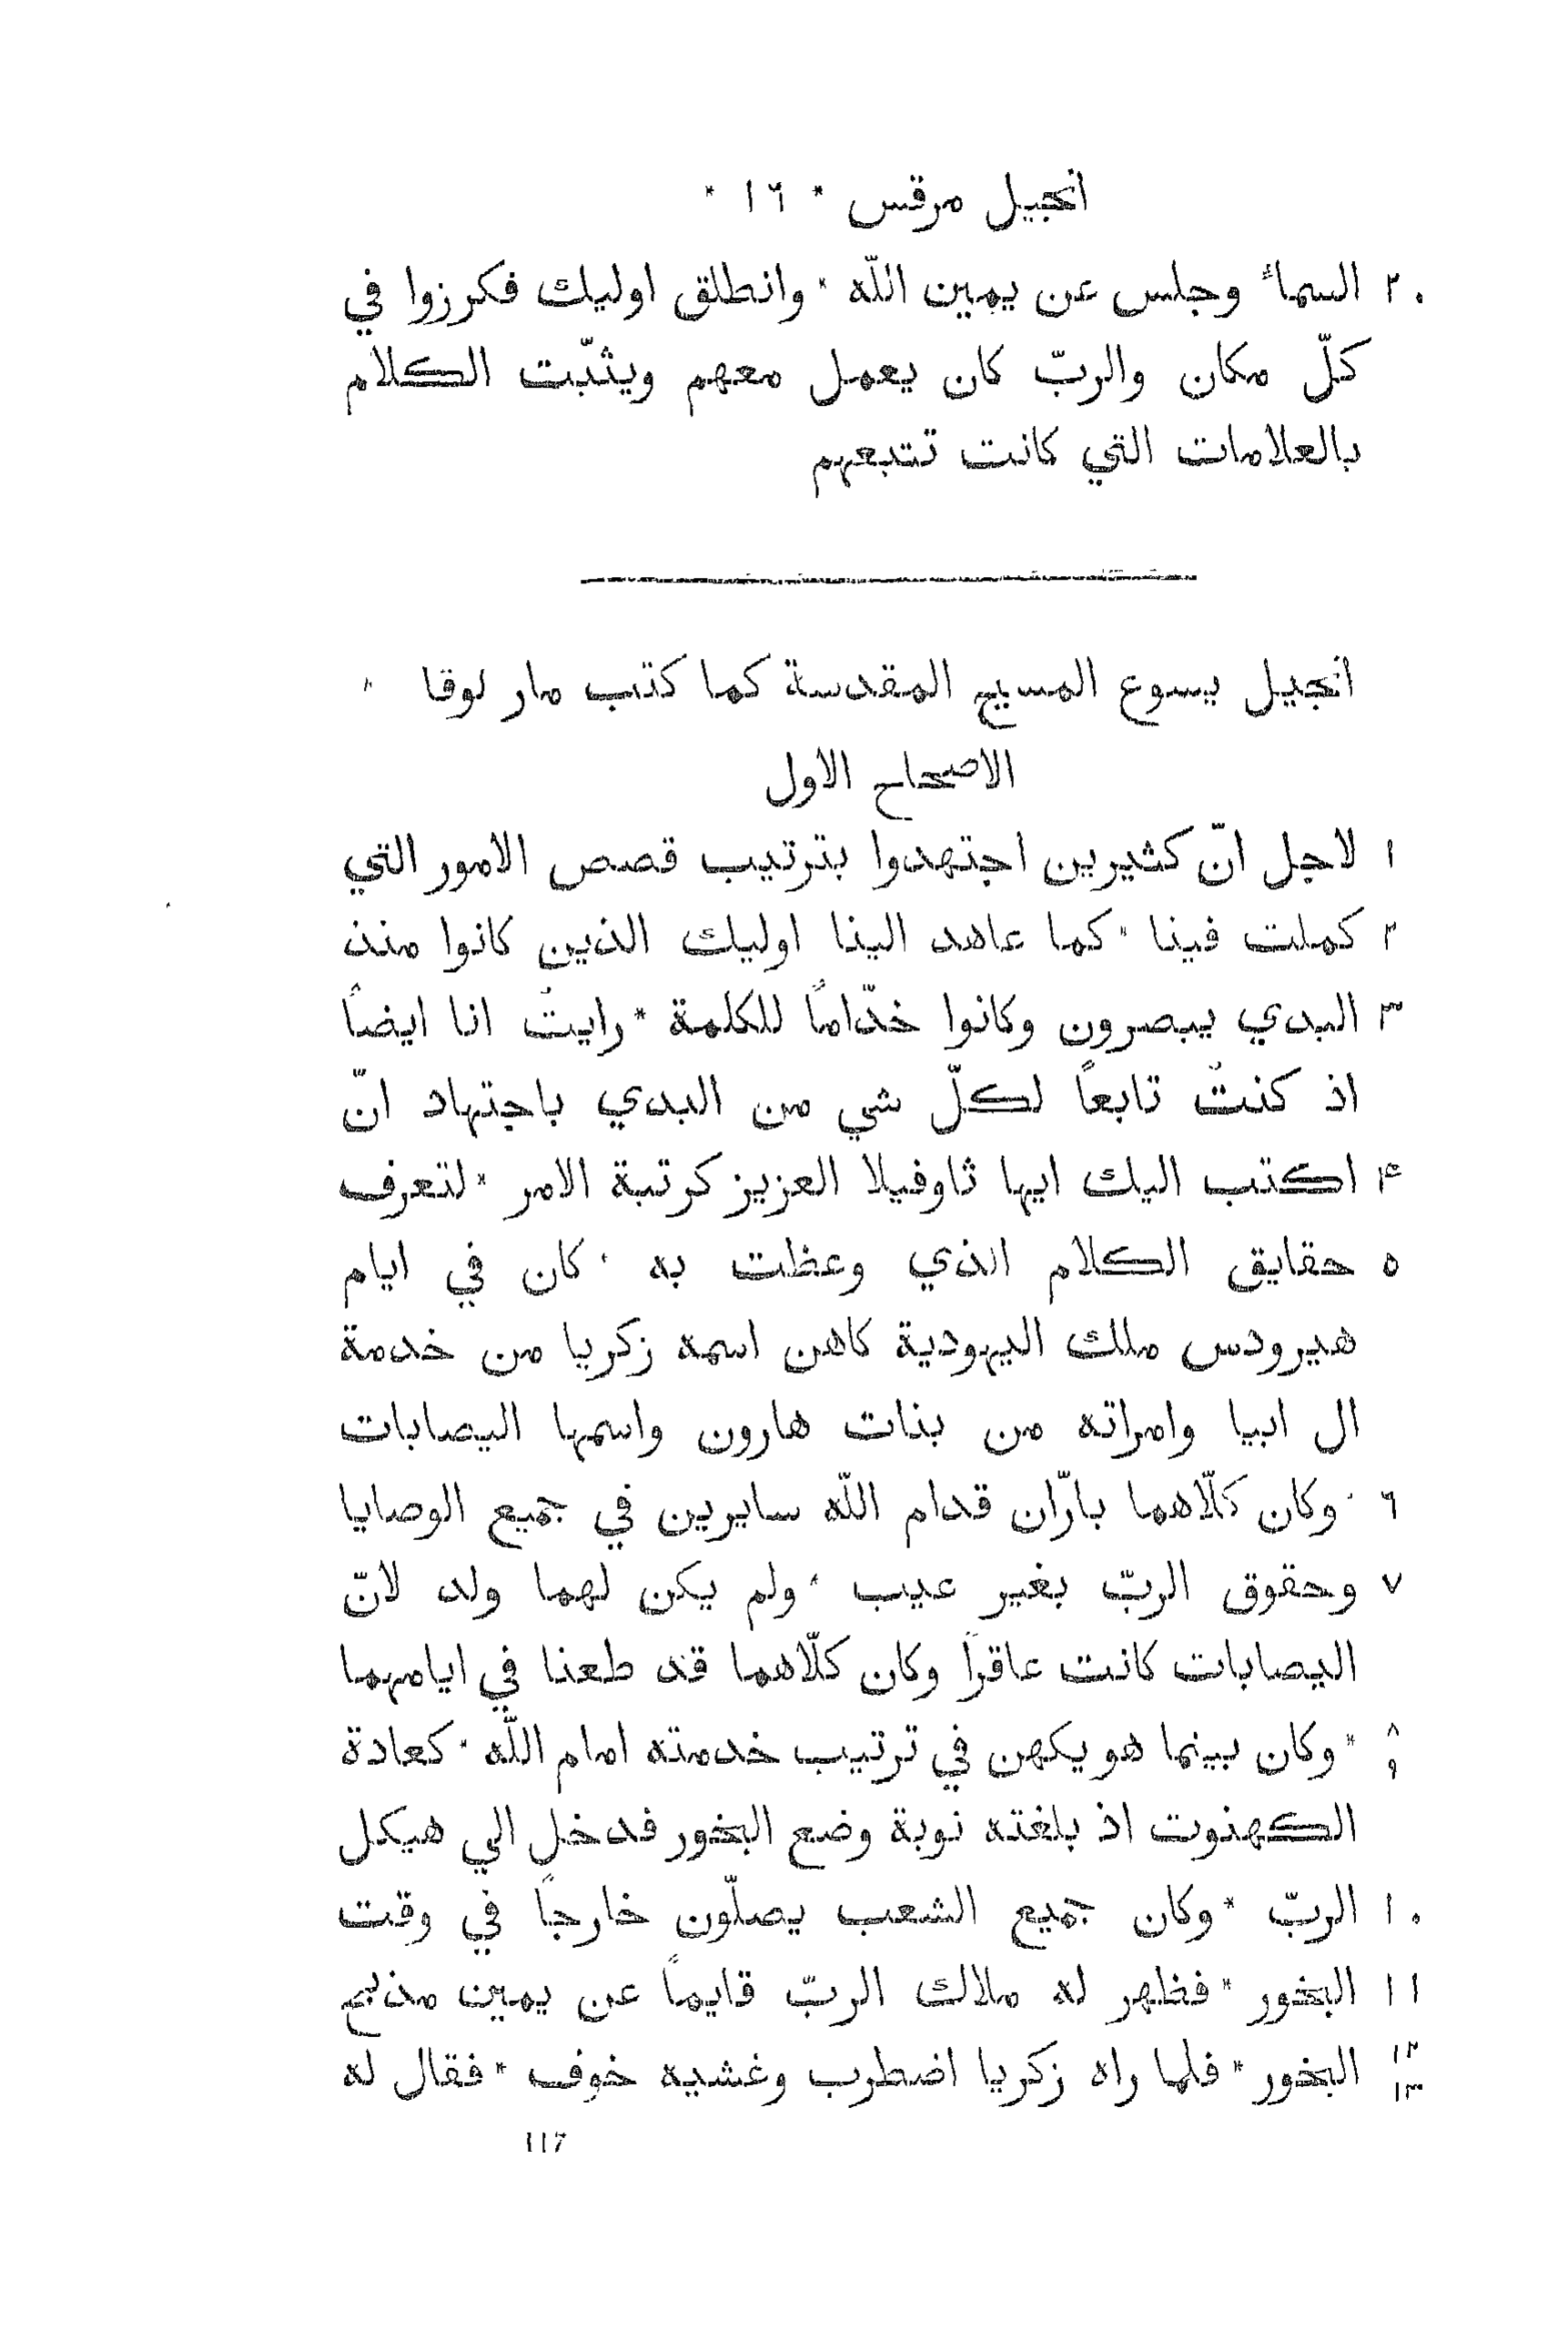 انجيل مرقس * ١٦ *
٢٠ السمأ وجلس عن يمين اللّه * وانطلق اوليك فكرزوا في
كلّ مكان والربّ كان يعمل معهم ويثبّت الكلام
بالعلامات التي كانت تتبعهم
انجيل يسوع المسيح المقدسة كما كتب مار لوقا *
الاصحاح الاول
١ لاجل انّ كثيرين اجتهدوا بترتيب قصص الامور التي
٢ كملت فينا * كما عاهد الينا اوليك الذين كانوا منذ
٣ البدي يبصرون وكانوا خدّامًا للكلمة * رايتُ انا ايضًا
اذ كنتُ تابعًا لكلّ شي من البدي باجتهاد انّ
۴ اكتب اليك ايها ثاوفيلا العزيز كرتبة الامر * لتعرف
٥ حقايق الكلام الذي وعظت به * كان في ايام
هيرودس ملك اليهودية كاهن اسمه زكريا من خدمة
ال ابيا وامراته من بنات هارون واسمها اليصابات
٦ * وكان كلّاهما بارّان قدام اللّه سايرين في جميع الوصايا
٧ وحقوق الربّ بغير عيب * ولم يكن لهما ولد لانّ
اليصابات كانت عاقرًا وكان كلّاهما قد طعنا في ايامهما
٨ ٩ * وكان بينما هو يكهن في ترتيب خدمته امام اللّه * كعادة
الكهنوت اذ بلغته نوبة وضع البخور فدخل الي هيكل
١٠ الربّ * وكان جميع الشعب يصلّون خارجًا في وقت
١١ البخور * فظهر له ملاك الربّ قايمًا عن يمين مذبح
١٢ ١٣ البخور * فلما راه زكريا اضطرب وغشيه خوف * فقال له
117